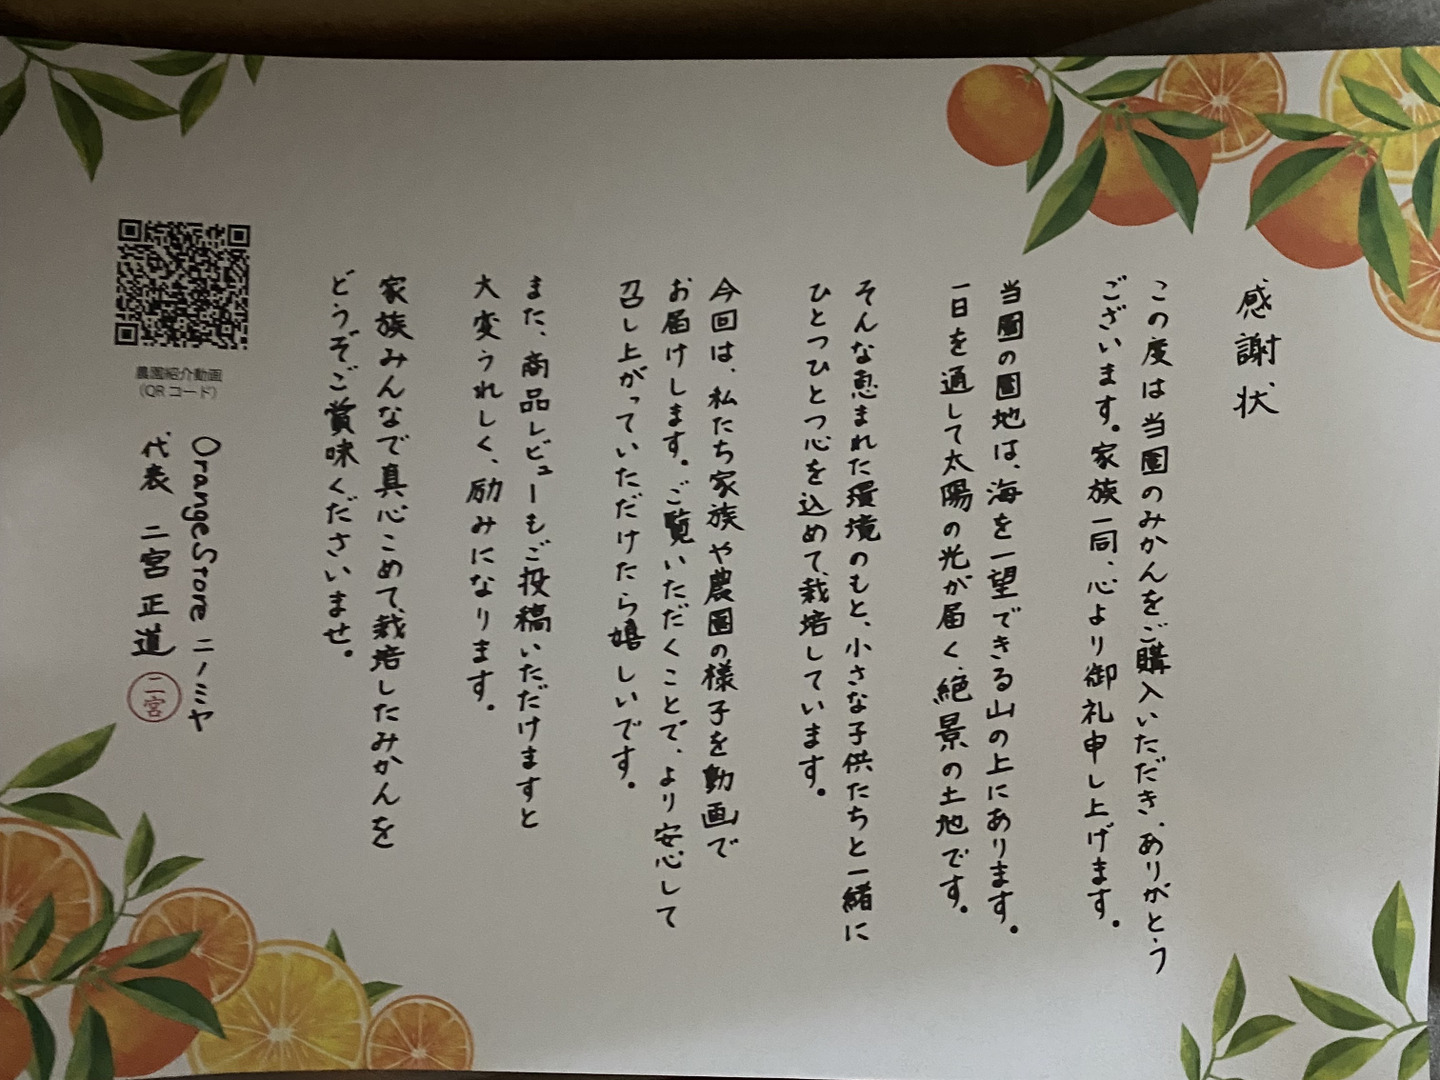 感謝状
この度は当園のみかんをご購入いただき、ありがとう
ございます。家族一同、心より御礼申し上げます。
当園の園地は、海を一望できる山の上にあります。
一日を通して太陽の光が届く、絶景の土地です。
そんな恵まれた環境のもと、小さな子供たちと一緒に
ひとつひとつ心を込めて、栽培しています。
今回は、私たち家族や農園の様子を動画で
お届けします。ご覧いただくことで、より安心して
召し上がっていただけたら嬉しいです。
また、商品レビューもご投稿いただけますと
大変うれしく、励みになります。
家族みんなで真心こめて、栽培したみかんを
どうぞご賞味くださいませ。
農園紹介動画
(QRコード)
OrangeStore ニノミヤ
代表 二宮正道
二宮